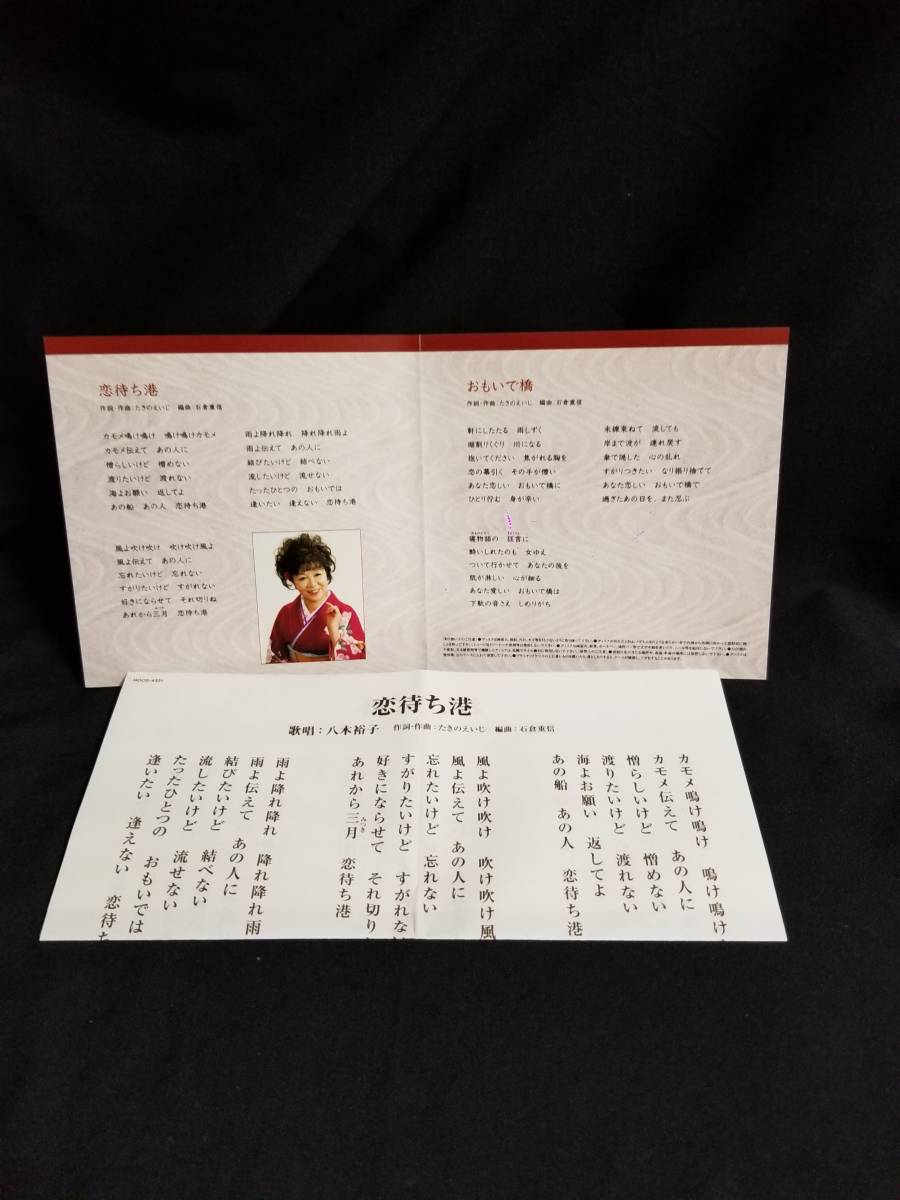 恋待ち港
作詞・作曲：たきのえいじ　編曲：石倉重信
カモメ鳴け鳴け　鳴け鳴けカモメ
カモメ伝えて　あの人に
憎らしいけど　憎めない
渡りたいけど　渡れない
海よお願い　返してよ
あの船　あの人　恋待ち港
風よ吹け吹け　吹け吹け風よ
風よ伝えて　あの人に
忘れたいけど　忘れない
すがりたいけど　すがれない
好きにならせて　それ切りね
あれから三月　恋待ち港
雨よ降れ降れ　降れ降れ雨よ
雨よ伝えて　あの人に
結びたいけど　結べない
流したいけど　流せない
たったひとつの　おもいでは
逢いたい　逢えない　恋待ち港
おもいで橋
作詞・作曲：たきのえいじ　編曲：石倉重信
軒にしたたる　雨しずく
堀割りくぐり　川になる
抱いてください　焦がれる胸を
恋の幕引く　その手が憎い
あなた恋しい　おもいで橋に
ひとり佇む　身が辛い
寝物語の　狂言に
酔いしれたのも　女ゆえ
ついて行かせて　あなたの後を
肌が淋しい　心が細る
あなた愛しい　おもいで橋は
下駄の音さえ　しめりがち
未練束ねて　流しても
岸まで波が　連れ戻す
傘で隠した　心の乱れ
すがりつきたい　なり振り捨てて
あなた恋しい　おもいで橋で
過ぎたあの日を、また忍ぶ
恋待ち港
歌唱：八木裕子　作詞・作曲：たきのえいじ　編曲：石倉重信
カモメ鳴け鳴け　鳴け鳴け
カモメ伝えて　あの人に
憎らしいけど　憎めない
渡りたいけど　渡れない
海よお願い　返してよ
あの船　あの人　恋待ち港
風よ吹け吹け　吹け吹け風
風よ伝えて　あの人に
忘れたいけど　忘れない
すがりたいけど　すがれな
好きにならせて　それ切り
あれから三月　恋待ち港
みつき
雨よ降れ降れ　降れ降れ雨
雨よ伝えて　あの人に
結びたいけど　結べない
流したいけど　流せない
たったひとつの　おもいでは
逢いたい　逢えない　恋待